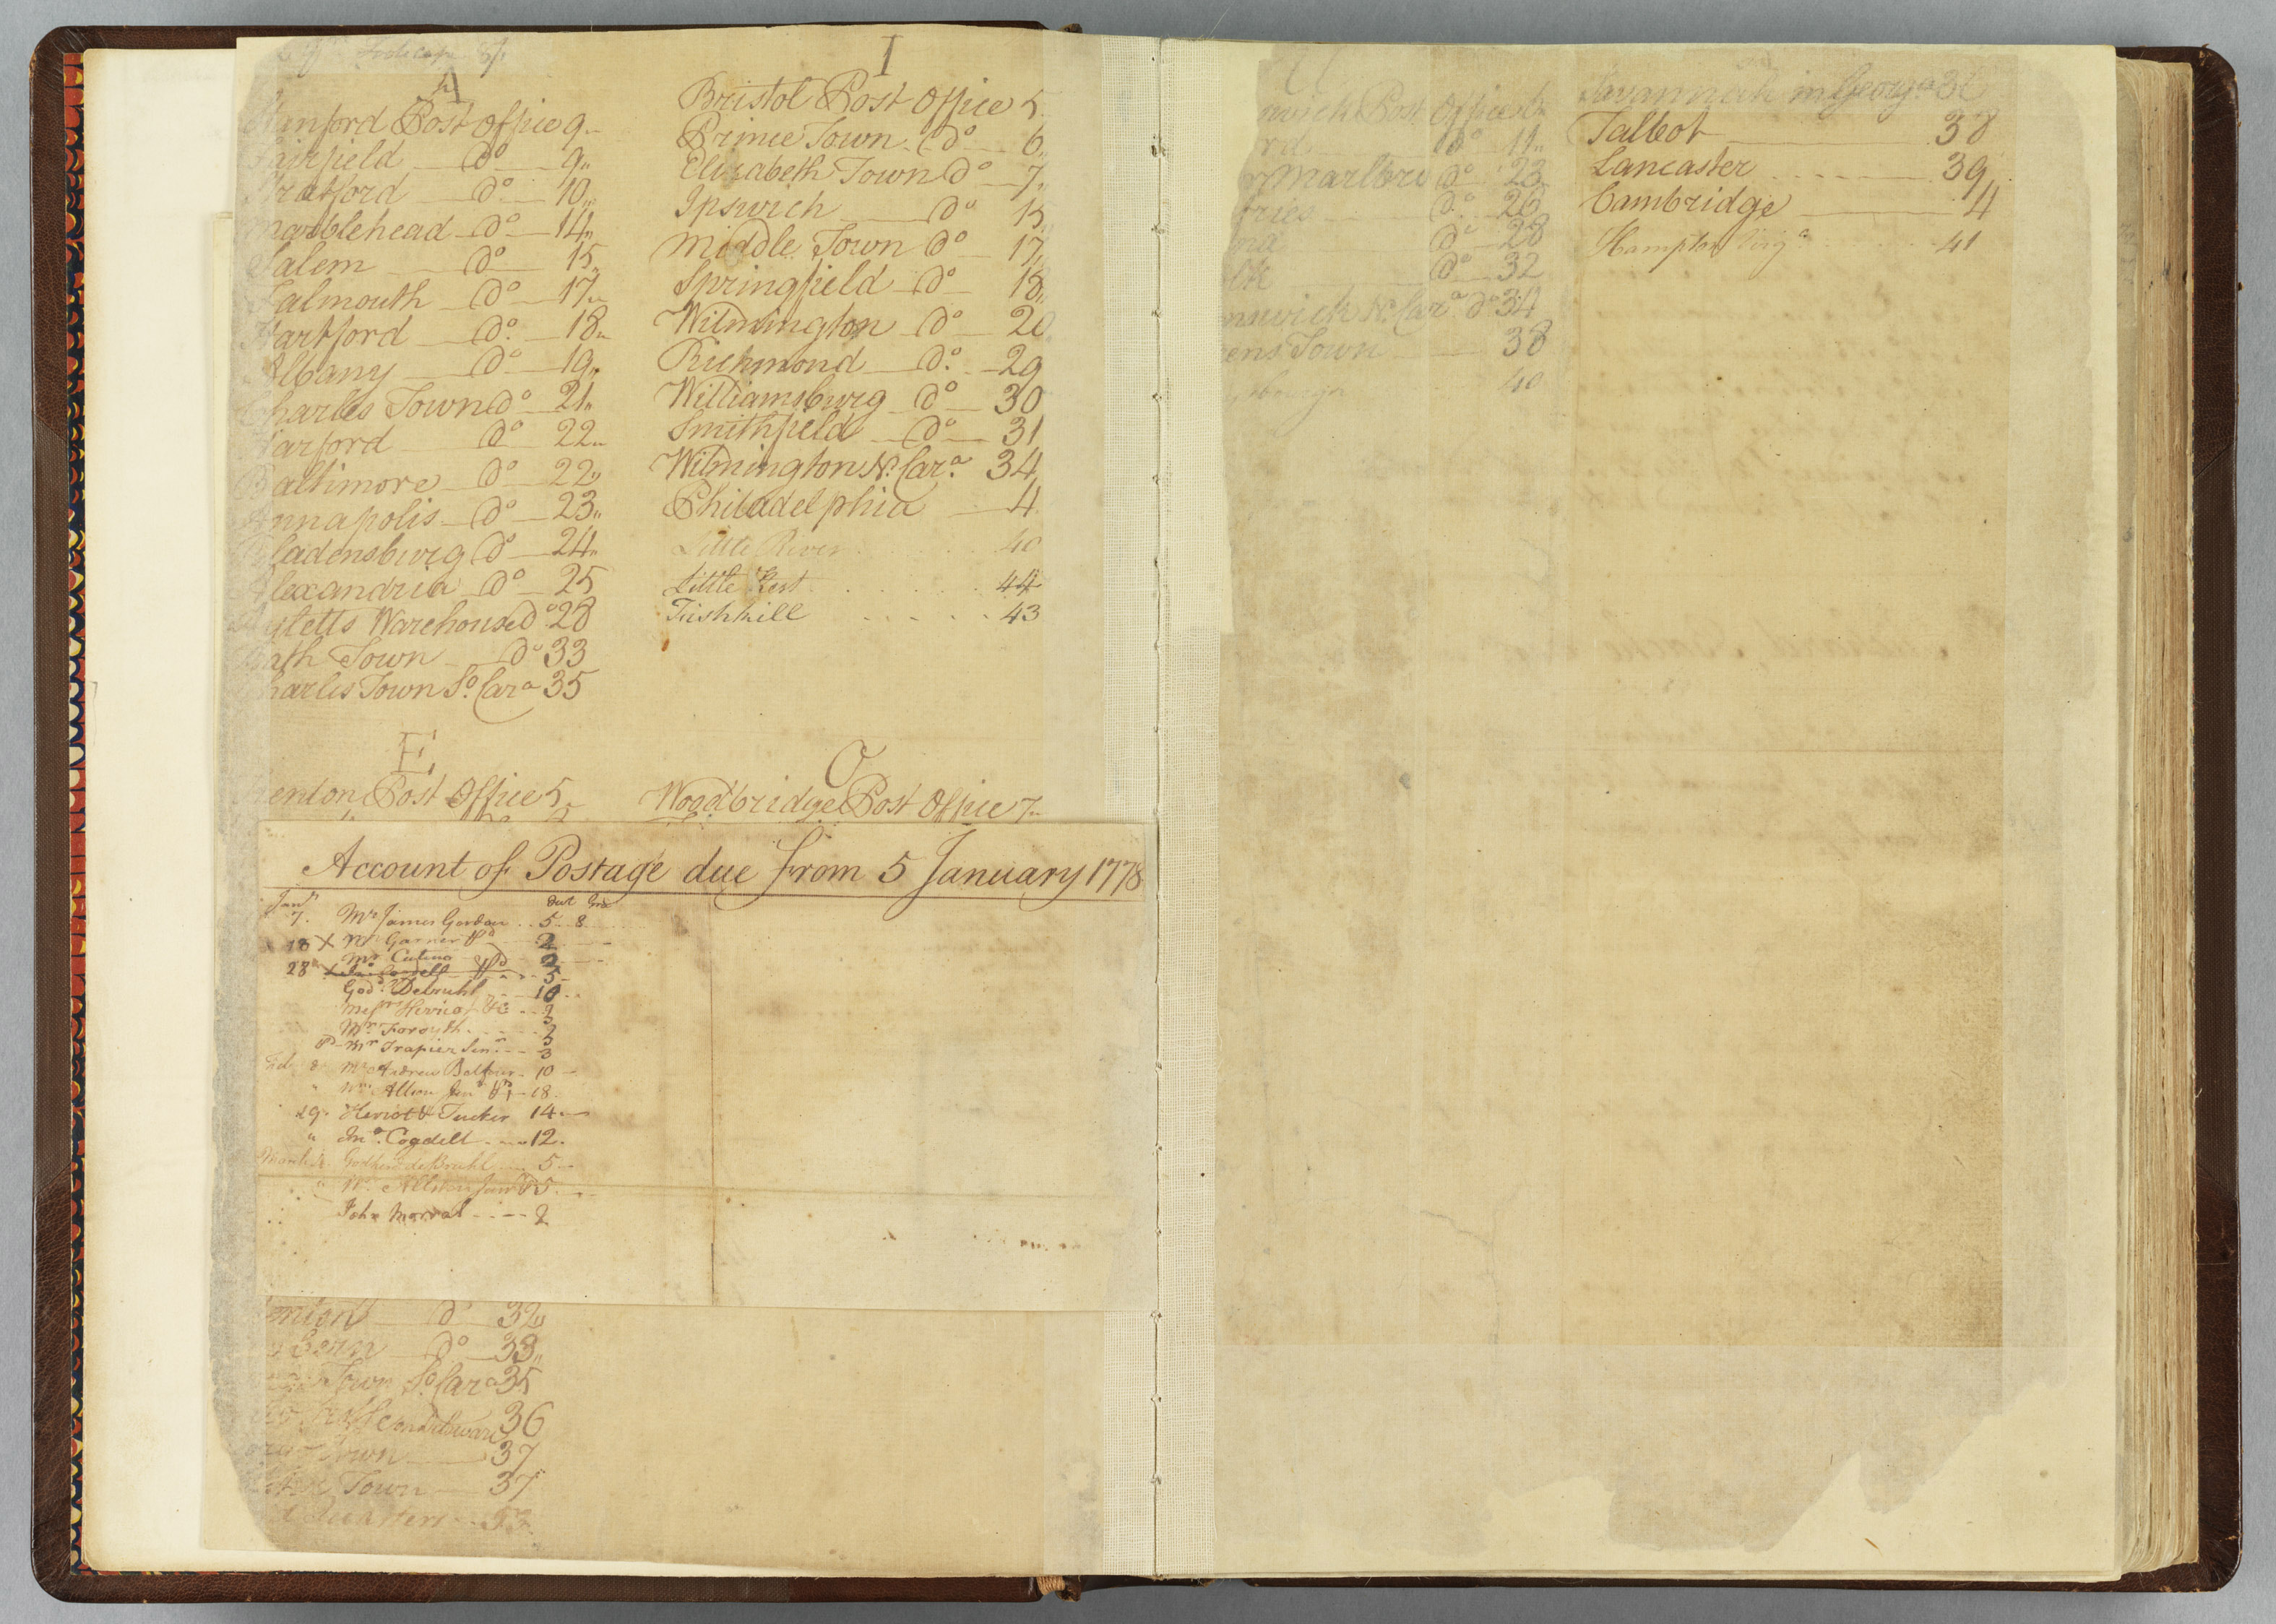 A
Stanford Post Office 9
Fairfield do 9
Stratford do 10
Marblehead do 14
Salem do 15
Falmouth do 17
Hartford do 18
Albany do 19
Charles Town do 21
Harford do 22
Baltimore do 22
Annapolis do 23
Bladensburg do 24
Alexandria do 25
Ayletts Warehouse do 28
Bath Town do 33
Charles Town So. Cara 35
E
Trenton Post Office 5
I
Bristol Post Office 5
Prince Town do 6
Elizabeth Town do 7
Ipswich do 15
Middle Town do 17
Springfield do 18
Wilmington do 20
Richmond do 29
Williamsburg do 30
Smithfield do 31
Wilmington No. Cara. 34
Philadelphia 4
Little River 40
Little Rest 44
Fishkill 43
O
Woodbridge Post Office 7
Account of Postage due from 5 January 1778
Jany
7. Mr James Gordon 5 8
18 X Mr Garner 2
Mr Cuttino 2
28 5
Godd. Debruhl 10
Messrs Heriot &c
Mr. Forsyth 3
Pd Mr Trapier Senr. 3
Feb 8 Mr Andrew Balfour 10
" Wm Allston Junr 18
29 Heriot & Tucker 14
" Jno. Cogdell 12
March de Bruhl 5
" Wm. Allston Junr 5
John Morral 2
do 32
bern do 33
Town So. Cara 35
36
Town 37
Town 37
Quarters
wick Post Office
rd do 11
Marlbro do 23
fries do 26
do 28
do 32
nswick No. Cara. do 34
ens Town 38
40
Savannah in Georga
Talbot 38
Lancaster 39
Cambridge 4
Hampton Virga 41